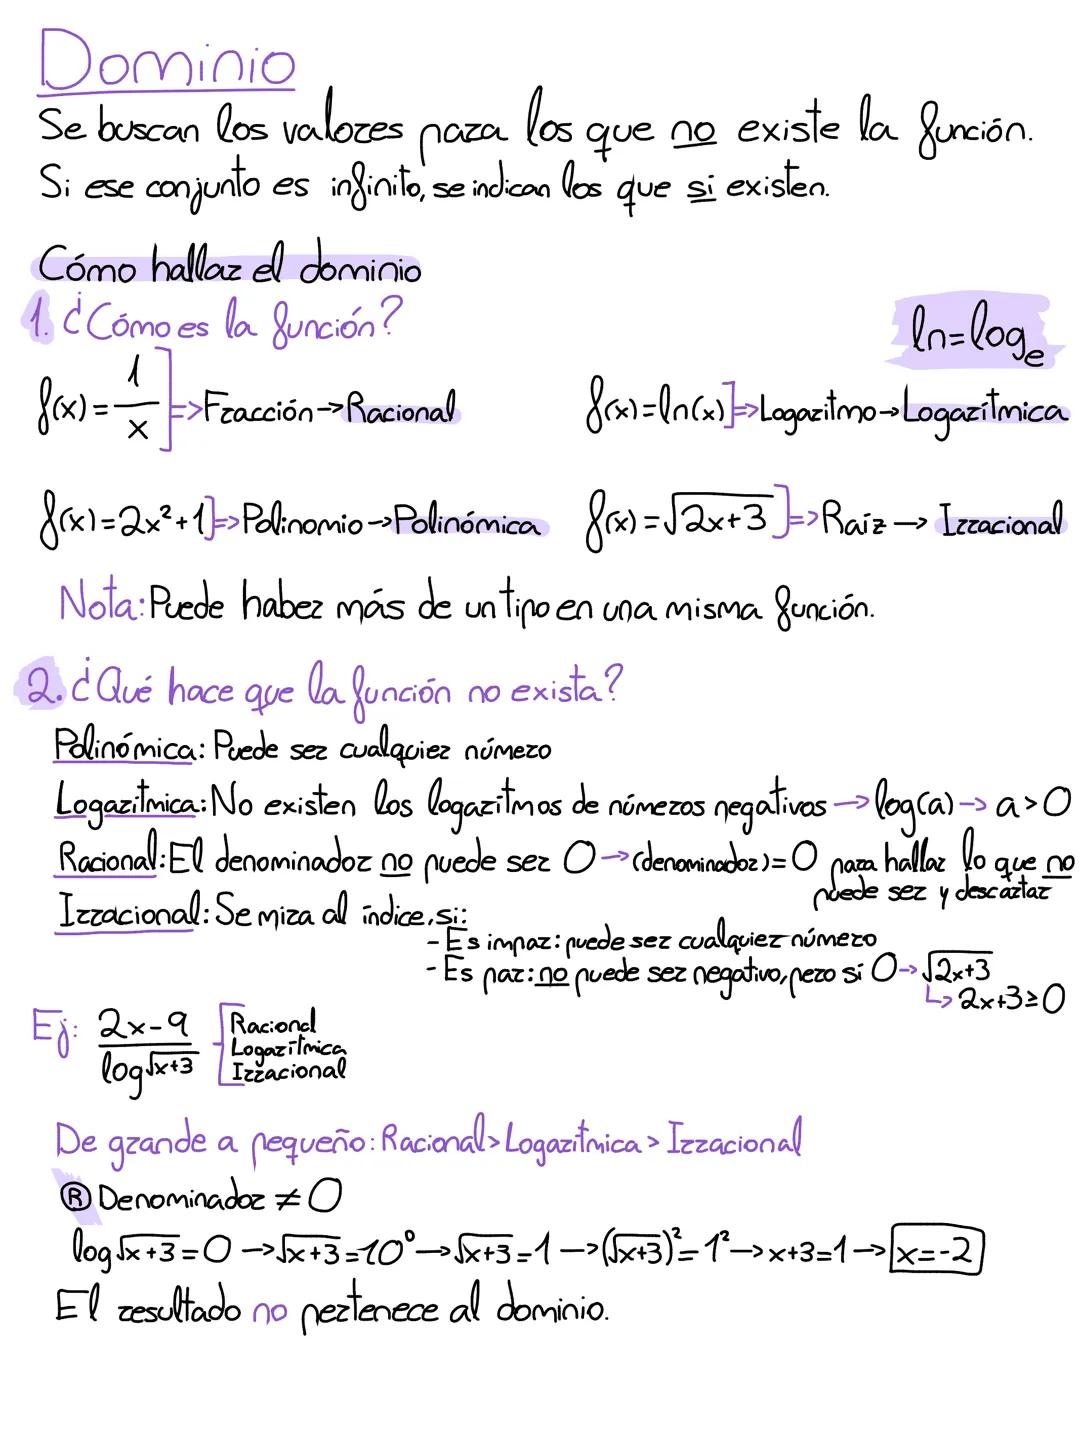 Dominio
Se buscan los valores para los que no existe la función.
Si ese conjunto es infinito, se indican los que sí existen.
Cómo hallar el dominio
1. ¿Cómo es la función?
ln=logₑ
f(x)=1/x ]=>Fracción→Racional
f(x)=ln(x)]=>Logaritmo→Logarítmica
f(x)=2x²+1]=>Polinomio→Polinómica
f(x)=√2x+3 ]=>Raíz→ Irracional
Nota: Puede haber más de un tipo en una misma función.
2. ¿Qué hace que la función no exista?
Polinómica: Puede ser cualquier número
Logarítmica: No existen los logaritmos de números negativos → log(a) → a>0
Racional: El denominador no puede ser 0→(denominador)=0 para hallar lo que no
puede ser y descartar
Irracional: Se mira al índice, si:
- Es impar: puede ser cualquier número
- Es par: no puede ser negativo, pero sí 0→√2x+3
↳ 2x+3≥0
Ej: 2x-9/log√x+3
Racional
Logarítmica
Irracional
De grande a pequeño: Racional>Logarítmica> Irracional
Ⓡ Denominador ≠ 0
log√x+3=0→√x+3=10⁰→√x+3=1→(√x+3)²=1²→x+3=1→x=-2
El resultado no pertenece al dominio.